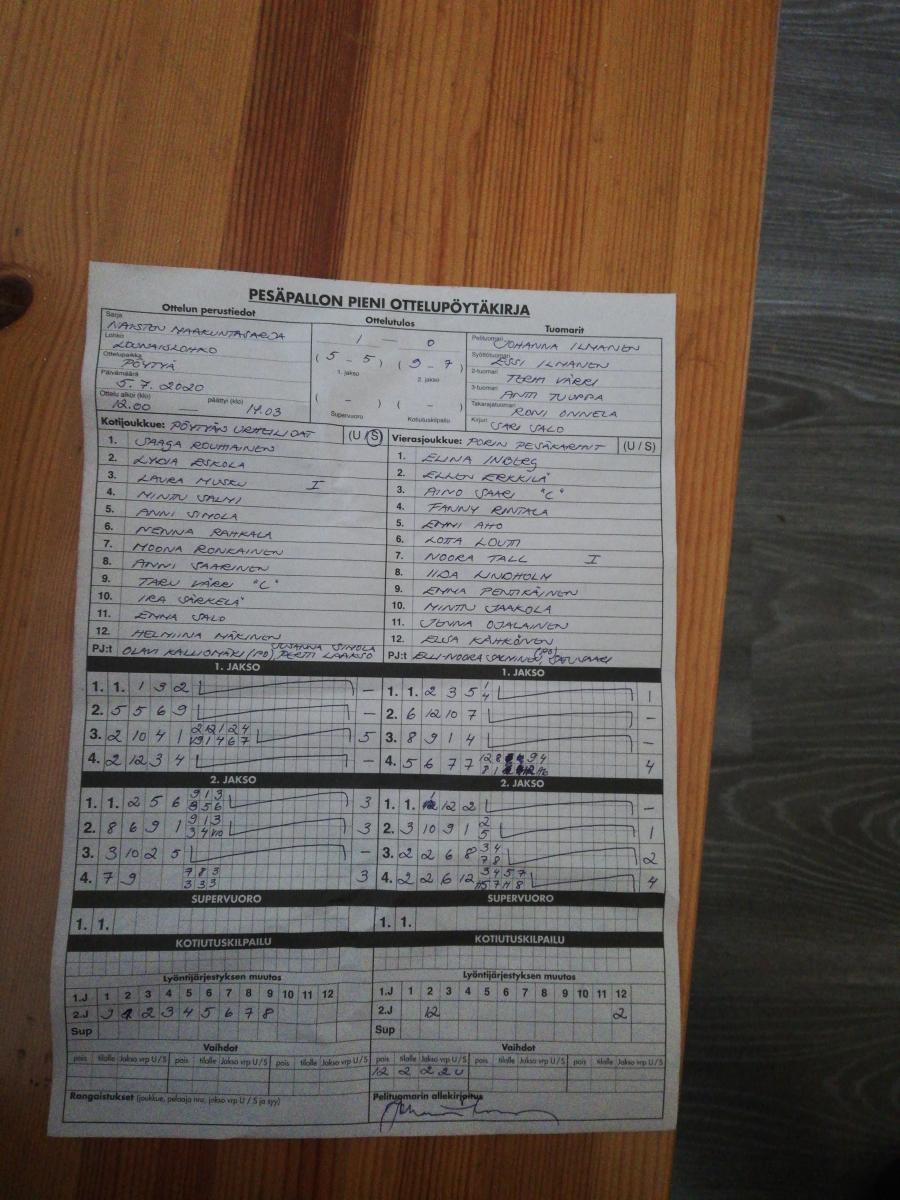 PESÄPALLON PIENI OTTELUPÖYTÄKIRJA
Ottelun perustiedot
Sarja
NAISTEN MAAKUNTASARJA
Lohko
LOUNAISLOHKO
Ottelupaikka
PÖYTYÄ
Päivämäärä
5.7.2020
Ottelu alkoi (klo) päättyi (klo)
12.00 — 14.03
Ottelutulos
1 — 0
(5 - 5) (9 - 7)
1. jakso 2. jakso
( - ) ( - )
Supervuoro Kotiutuskilpailu
Tuomarit
Pelituomari JOHANNA ILMANEN
Syöttötuomari ESSI ILMANEN
2-tuomari TERHI VÄRRI
3-tuomari ANTTI TUOPPA
Takarajatuomari RONI ONNELA
Kirjuri SARI SALO
Kotijoukkue: PÖYTYÄN URHEILIJAT (U / S)
1. SAAGA ROUHIAINEN
2. LYDIA ESKOLA
3. LAURA MUSKU I
4. MINTTU SALMI
5. ANNI SIMOLA
6. NENNA RAHKALA
7. MOONA RONKAINEN
8. ANNI SAARINEN
9. TARU VÄRRI "C"
10. IRA SÄRKELÄ
11. EMMA SALO
12. HELMIINA MÄKINEN
PJ:t OLAVI KALLIOMÄKI (PJ), PERTTI LAAKSO
SUSANNA SIMOLA
Vierasjoukkue: PORIN PESÄKARHUT (U / S)
1. ELINA INBERG
2. ELLEN ERKKILÄ
3. AINO SAARI "C"
4. FANNY RINTALA
5. EMMI AHO
6. LOTTA LOUTI
7. NOORA TALL I
8. IIDA LINDHOLM
9. EMMA PENTIKÄINEN
10. MINTTU JAAKOLA
11. JENNA OJALAINEN
12. ELSA KÄHKÖNEN
PJ:t ELLI-NOORA SALMINEN, SATU SAARI
1. JAKSO
1. 1. 1 3 2 —
2. 5 5 6 9 —
3. 2 10 4 1 5
4. 2 12 3 4 —
1. JAKSO
1. 1. 2 3 5 1 4 1
2. 6 12 10 7 —
3. 8 9 1 4 —
4. 5 6 7 7 4
2. JAKSO
1. 1. 2 5 6 9 1 3 3
2. 8 6 9 1 9 1 3 3
3. 3 10 2 5 —
4. 7 9 7 8 3 3 3 3 3
2. JAKSO
1. 1. 12 2 —
2. 3 10 9 1 2 5 1
3. 2 2 6 8 3 4 7 8 2
4. 2 2 6 12 3 4 5 7 4
SUPERVUORO
1. 1.
SUPERVUORO
1. 1.
KOTIUTUSKILPAILU
KOTIUTUSKILPAILU
Lyöntijärjestyksen muutos
1.J 1 2 3 4 5 6 7 8 9 10 11 12
2.J 9 1 2 3 4 5 6 7 8
Sup
Lyöntijärjestyksen muutos
1.J 1 2 3 4 5 6 7 8 9 10 11 12
2.J 12 2
Sup
Vaihdot
pois tilalle Jakso vrp U/S pois tilalle Jakso vrp U/S pois tilalle Jakso vrp U/S
Vaihdot
pois tilalle Jakso vrp U/S pois tilalle Jakso vrp U/S pois tilalle Jakso vrp U/S
12 2 2 2 U
Rangaistukset (joukkue, pelaaja nro, jakso vrp U / S ja syy)
Pelituomarin allekirjoitus